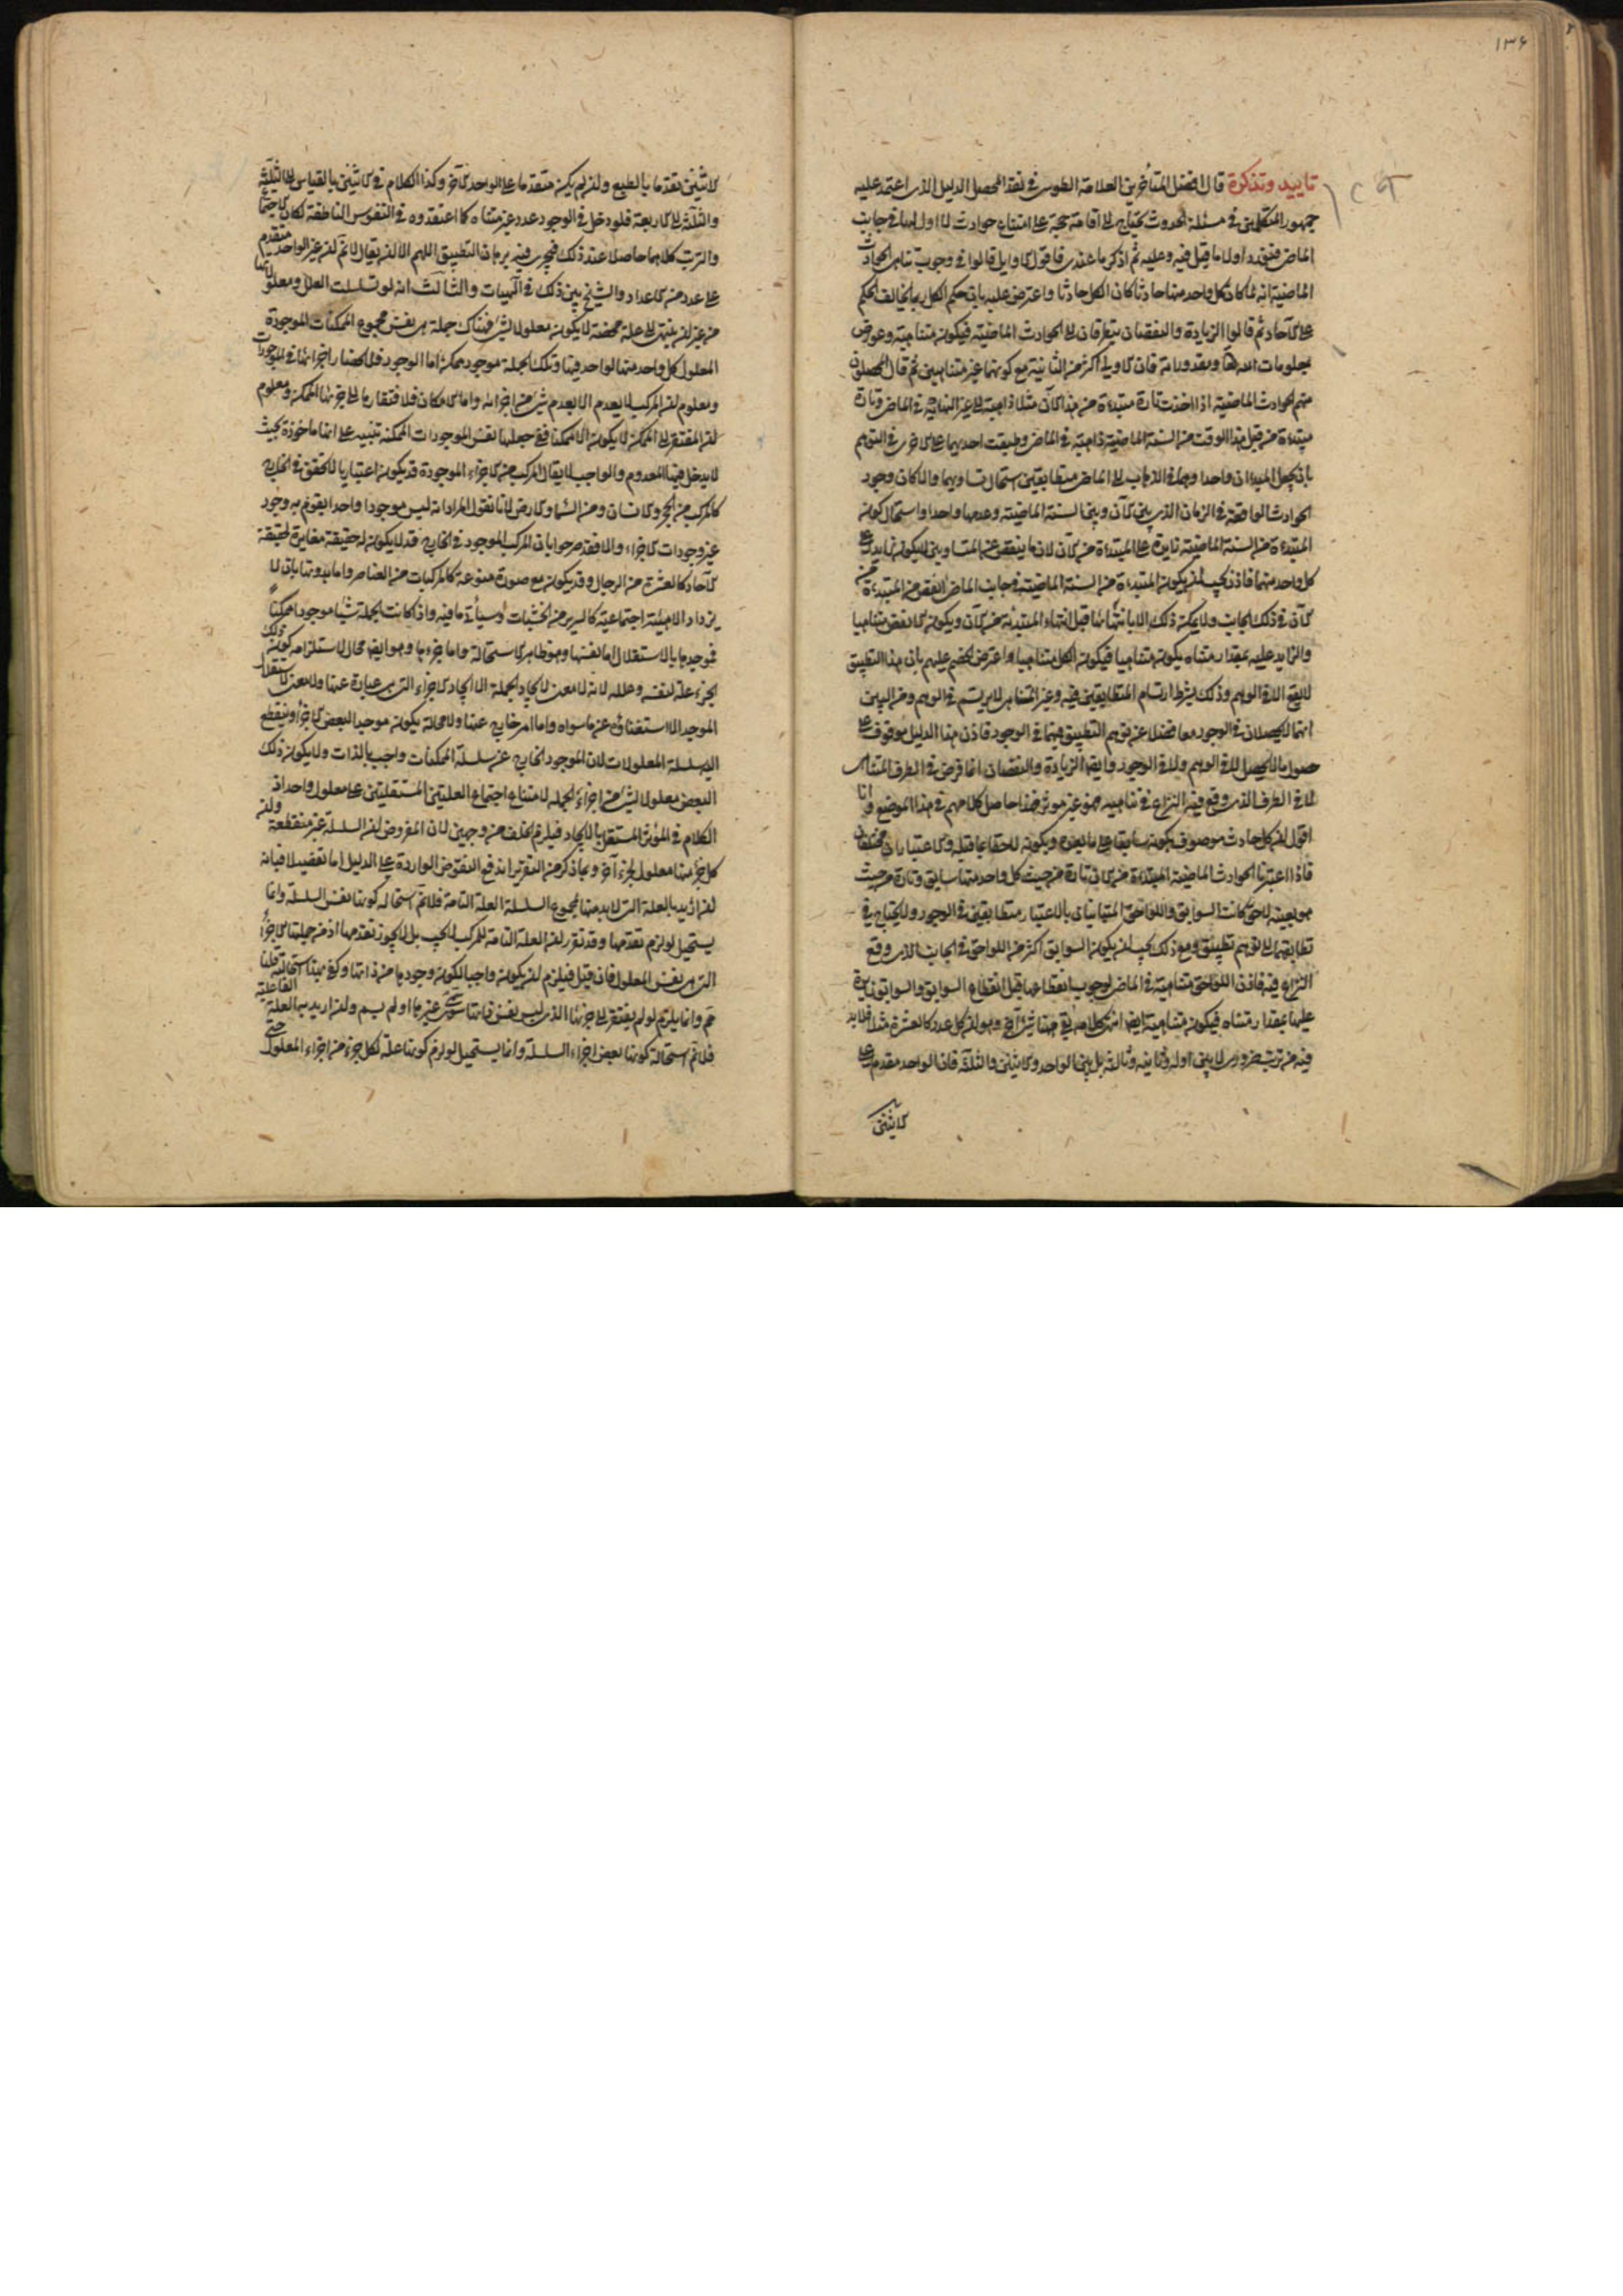 ١٣۶
تاييد وتذكرة قال افضل المتأخرين العلامة الطوسى فى نقد المحصل الدليل الذى اعتمد عليه
جمهور المتكلمين فى مسئلة الحدوث يحتاج الى اقامة حجة على امتناع حوادث لا اول لها فى جانب
الماضى فنورد اولا ما قيل فيه وعليه ثم اذكر ما عندى فاقول الاوايل قالوا فى وجوب تناهى الحوادث
الماضية انه لما كان كل واحد منها حادثا كان الكل حادثا واعترض عليه بان حكم الكل ربما يخالف الحكم
على الآحاد ثم قالوا الزيادة والنقصان يتطرقان الى الحوادث الماضية فيكون متناهية وعورض
بمعلومات الله تعا ومقدوراته فان الاولى اكثر من الثانية مع كونهما غير متناهيين ثم قال المحصلون
منهم الحوادث الماضية اذا اخذت تارة مبتدءة من هذا الآن مثلا ذاهبة الى غير النهاية فى الماضى وتارة
مبتدءة من قبل هذا الوقت من السنة الماضية ذاهبة فى الماضى وطبقت احديهما على الاخرى فى التوهم
بان يجعل المبدءان واحدا وهما فى الذهاب الى الماضى متطابقين استحال تساويهما والا كان وجود
الحوادث الواقعة فى الزمان الذى بين الآن وبين السنة الماضية وعدمها واحدا واستحال كون
المبتدءة من السنة الماضية زايدة على المبتدءة من الآن لان ما ينقص عن المتساويين لا يكون زايدا على
كل واحد منهما فاذن يجب ان يكون المبتدءة من السنة الماضية فى جانب الماضى انقص من المبتدءة من
الآن فى ذلك الجانب ولا يمكن ذلك الا بانتهائها قبل انتهاء المبتدئة من الآن ويكون الانقص متناهيا
والزايد عليه بمقدار متناه يكون متناهيا فيكون الكل متناهيا واعترض الخصم عليهم بان هذا التطبيق
لا يقع الا فى الوهم وذلك بشرط ارتسام المتطابقين فيه وغير المتناهى لا يرتسم فى الوهم ومن البين
انهما لا يحصلان فى الوجود معا فضلا عن توهم التطبيق فيهما فى الوجود فاذن هذا الدليل موقوف على
حصول ما لا يحصل لا فى الوهم ولا فى الوجود وايضا الزيادة والنقصان انما فرض فى الطرف المتناهى
لا فى الطرف الذى وقع فيه النزاع فى تناهيه فهو غير موثر فهذا حاصل كلامهم فى هذا الموضع وانا
اقول ان كل حادث موصوف بكونه سابقا على ما بعده وبكونه لاحقا بما قبله والاعتباران مختلفان
فاذا اعتبرنا الحوادث الماضية المبتدءة من الآن تارة من حيث كل واحد منها سابق وتارة من حيث
هو بعينه لاحق كانت السوابق واللواحق المتباينان بالاعتبار متطابقين فى الوجود ولا يحتاج فى
تطابقهما الى توهم تطبيق ومع ذلك يجب ان يكون السوابق اكثر من اللواحق فى الجانب الذى وقع
النزاع فيه فاذن اللواحق متناهية فى الماضى لوجوب انقطاعها قبل انقطاع السوابق والسوابق زايدة
عليها بمقدار متناه فيكون متناهية ايضا انتهى كلامه بقى هنا شئ آخر وهو ان كل عدد كالعشرة مثلا فلابد
فيه من ترتب ضرورى لا بين اوله وثانيه وثالثه بل بين الواحد والاثنين والثلثة فان الواحد مقدم على
الاثنين
الاثنين تقدما بالطبع وان لم يكن متقدما على الواحد الآخر وكذا الكلام فى الاثنين بالقياس الى الثلثة
والثلثة الى الاربعة فلو دخل فى الوجود عدد غير متناه كما اعتقدوه فى النفوس الناطقة لكان الاجتماع
والترتب كلاهما حاصلا عند ذلك فيجرى فيه برهان التطبيق اللهم الا ان يقال لا نم ان غير الواحد متقدم
على عدد من الاعداد والشيخ بين ذلك فى الهيات والثالث انه لو تسلسلت العلل ومعلولاتها
من غير ان ينتهى الى علة محضة لا يكون معلولا لشئ فهناك جملة هى نفس مجموع الممكنات الموجودة
المعلول كل واحد منها لواحد فيها وتلك الجملة موجود ممكن اما الوجود فلانحصار اجزائها فى الموجودات
ومعلوم ان المركب لا يعدم الا بعدم شئ من اجزائه واما الامكان فلافتقارها الى جزئها الممكن ومعلوم
ان المفتقر الى الممكن لا يكون الا ممكنا ففى جعلها نفس الموجودات الممكنة تنبيه على انها ماخوذة بحيث
لا يدخل فيها المعدوم والواجب لا يقال المركب من الاجزاء الموجودة قد يكون اعتباريا لا تحقق فى الخارج
كالمركب من الحجر والانسان ومن السماء والارض لانا نقول المراد انه ليس موجودا واحدا يقوم به وجود
غير وجودات الاجزاء والا فقد صرحوا بان المركب الموجود فى الخارج قد لا يكون له حقيقة مغايرة لحقيقة
الآحاد كالعشرة من الرجال وقد يكون مع صورة منوعة كالمركبات من العناصر واما بدونها بان لا
يزداد الا هيئة اجتماعية كالسرير من الخشبات وسيأتى ما فيه واذا كانت الجملة شيئا موجودا ممكنا
فموجدها بالاستقلال اما نفسها وهو ظاهر الاستحالة واما جزءها وهو ايضا محال لاستلزامه كون ذلك
الجزء علة لنفسه وعلله لانه لا معنى لايجاد الجملة الا ايجاد الاجزاء التى هى عبارة عنها ولا معنى لاستقلال
الموجد الا استغناؤه عن ما سواه واما امر خارج عنها ولا محالة يكون موجدا لبعض الاجزاء وينقطع
اليه سلسلة المعلولات لان الموجود الخارج عن سلسلة الممكنات واجب بالذات ولا يكون ذلك
البعض معلولا لشئ من اجزاء الجملة لامتناع اجتماع العلتين المستقلتين على معلول واحد اذ
الكلام فى المؤثر المستقل بالايجاد فيلزم الخلف من وجهين لان المفروض ان السلسلة غير منقطعة وان
كل جزء منها معلول لجزء آخر وبما ذكر من التقرير اندفع النقوض الواردة على الدليل اما تفصيلا فبانه
ان اريد بالعلة التى لابد منها لمجموع السلسلة العلة التامة فلا نم استحالة كونها نفس السلسلة وانما
يستحيل لو لزم تقدمها وقد تقرر ان العلة التامة للمركب لا يجب بل لا يجوز تقدمها اذ من جملتها الاجزاء
التى هى نفس المعلول فان قيل فيلزم ان يكون واجبا لكون وجودها من ذاتها وكفى بهذا استحالة قلنا
مم وانما يلزم لو لم يفتقر الى جزئها الذى ليس نفس ذاتها سواء سمى غيرها او لم يسم وان اريد بها العلة الفاعلية
فلا نم استحالة كونها بعض اجزاء السلسلة وانما يستحيل لو لزم كونها علة لكل جزء من اجزاء المعلول حتى